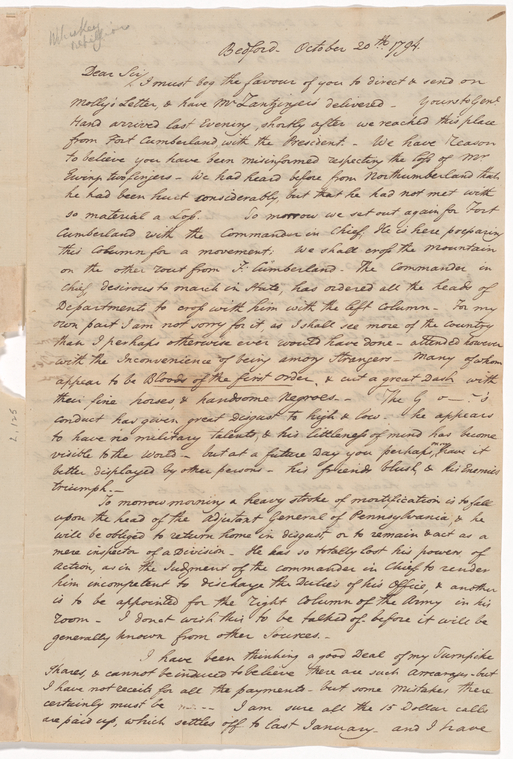 Whiskey
Bedford October 20th 1794.
Dear Sir,
I must beg the favour of you to direct & send on
Molly's Letter, & have Mr Zantzingers delivered - Yours to Genl
Hand arrived last Evening, shortly after we reached this place
from Fort Cumberland, with the President. - We have Reason
to believe you have been misinformed respecting the loss of Mr
Ewing two fingers - We had heard before from Northumberland that
he had been hurt considerably, but that he had not met with
so material a Loss. To morrow we set out again for Fort
Cumberland with the Commander in Chief. He is here preparing
this Column for a movement. We shall cross the mountain
on the other rout from F. Cumberland. The Commander in
Chief desirous to march in State, has ordered all the heads of
Departments to cross with him with the left Column - For my
own part I am not sorry for it as I shall see more of the Country
than I perhaps otherwise ever would have done - attended however
with the Inconvenience of being among Strangers - Many of whom
appear to be Bloods of the first order, & cut a great Dash with
their fine horses & handsome Negroes. - The G o — — 's
conduct has given great disgust to high & low - he appears
to have no military Talents, & his littleness of mind has become
visible to the World - but at a future Day you perhaps, may have it
better displayed by other persons - his friends blush & his Enemies
triumph. -
To morrow morning a heavy stroke of mortification is to fall
upon the head of the Adjutant General of Pennsylvania, & he
will be obliged to return home in disgust, or to remain & act as a
mere inspector of a Division - He has so totally lost his powers of
Action, as in the Judgment of the Commander in Chief to render
him incompetent to discharge the Duties of his Office, & another
is to be appointed for the Right Column of the Army in his
Room - I do not wish this to be talked of before it will be
generally known from other Sources. -
I have been thinking a good Deal of my Turnpike
Shares, & cannot be induced to believe there are such Arrearages - but
I have not receits for all the payments - but some mistakes there
certainly must be - I am sure all the 15 Dollar calls
are paid up, which settles off to last January - and I have